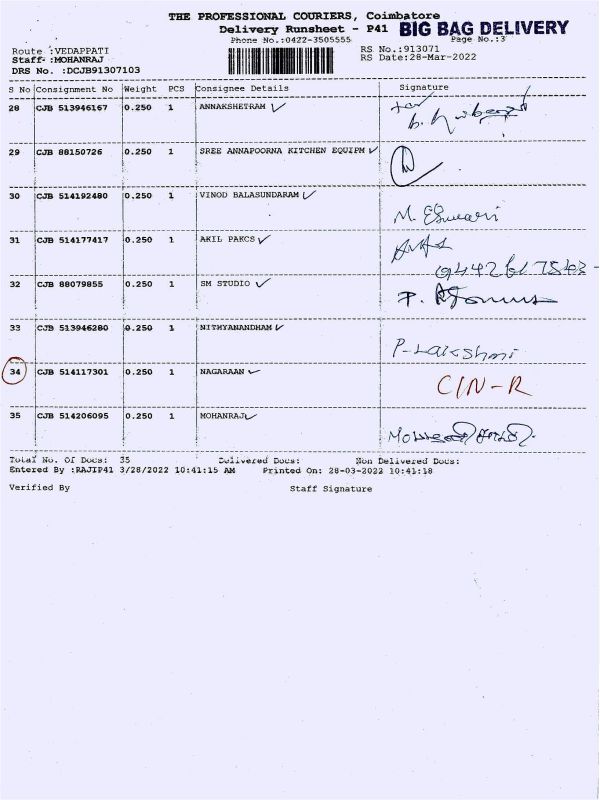 THE PROFESSIONAL COURIERS, Coimbatore
Delivery Runsheet - P41 BIG BAG DELIVERY
Phone No.:0422-3505555 Page No.:3
Route :VEDAPPATI RS No.:913071
Staff :MOHANRAJ RS Date:28-Mar-2022
DRS No. :DCJB91307103
S No Consignment No Weight PCS Consignee Details Signature
28 CJB 513946167 0.250 1 ANNAKSHETRAM ✓
29 CJB 88150726 0.250 1 SREE ANNAPOORNA KITCHEN EQUIPM ✓
30 CJB 514192480 0.250 1 VINOD BALASUNDARAM ✓ M. Eswari
31 CJB 514177417 0.250 1 AKIL PAKCS ✓
32 CJB 88079855 0.250 1 SM STUDIO ✓
33 CJB 513946280 0.250 1 NITHYANANDHAM ✓ P-Lakshmi
34 CJB 514117301 0.250 1 NAGARAAN ✓ C/N-R
35 CJB 514206095 0.250 1 MOHANRAJ ✓
Total No. Of Docs: 35 Delivered Docs: Non Delivered Docs:
Entered By :RAJIP41 3/28/2022 10:41:15 AM Printed On: 28-03-2022 10:41:18
Verified By Staff Signature